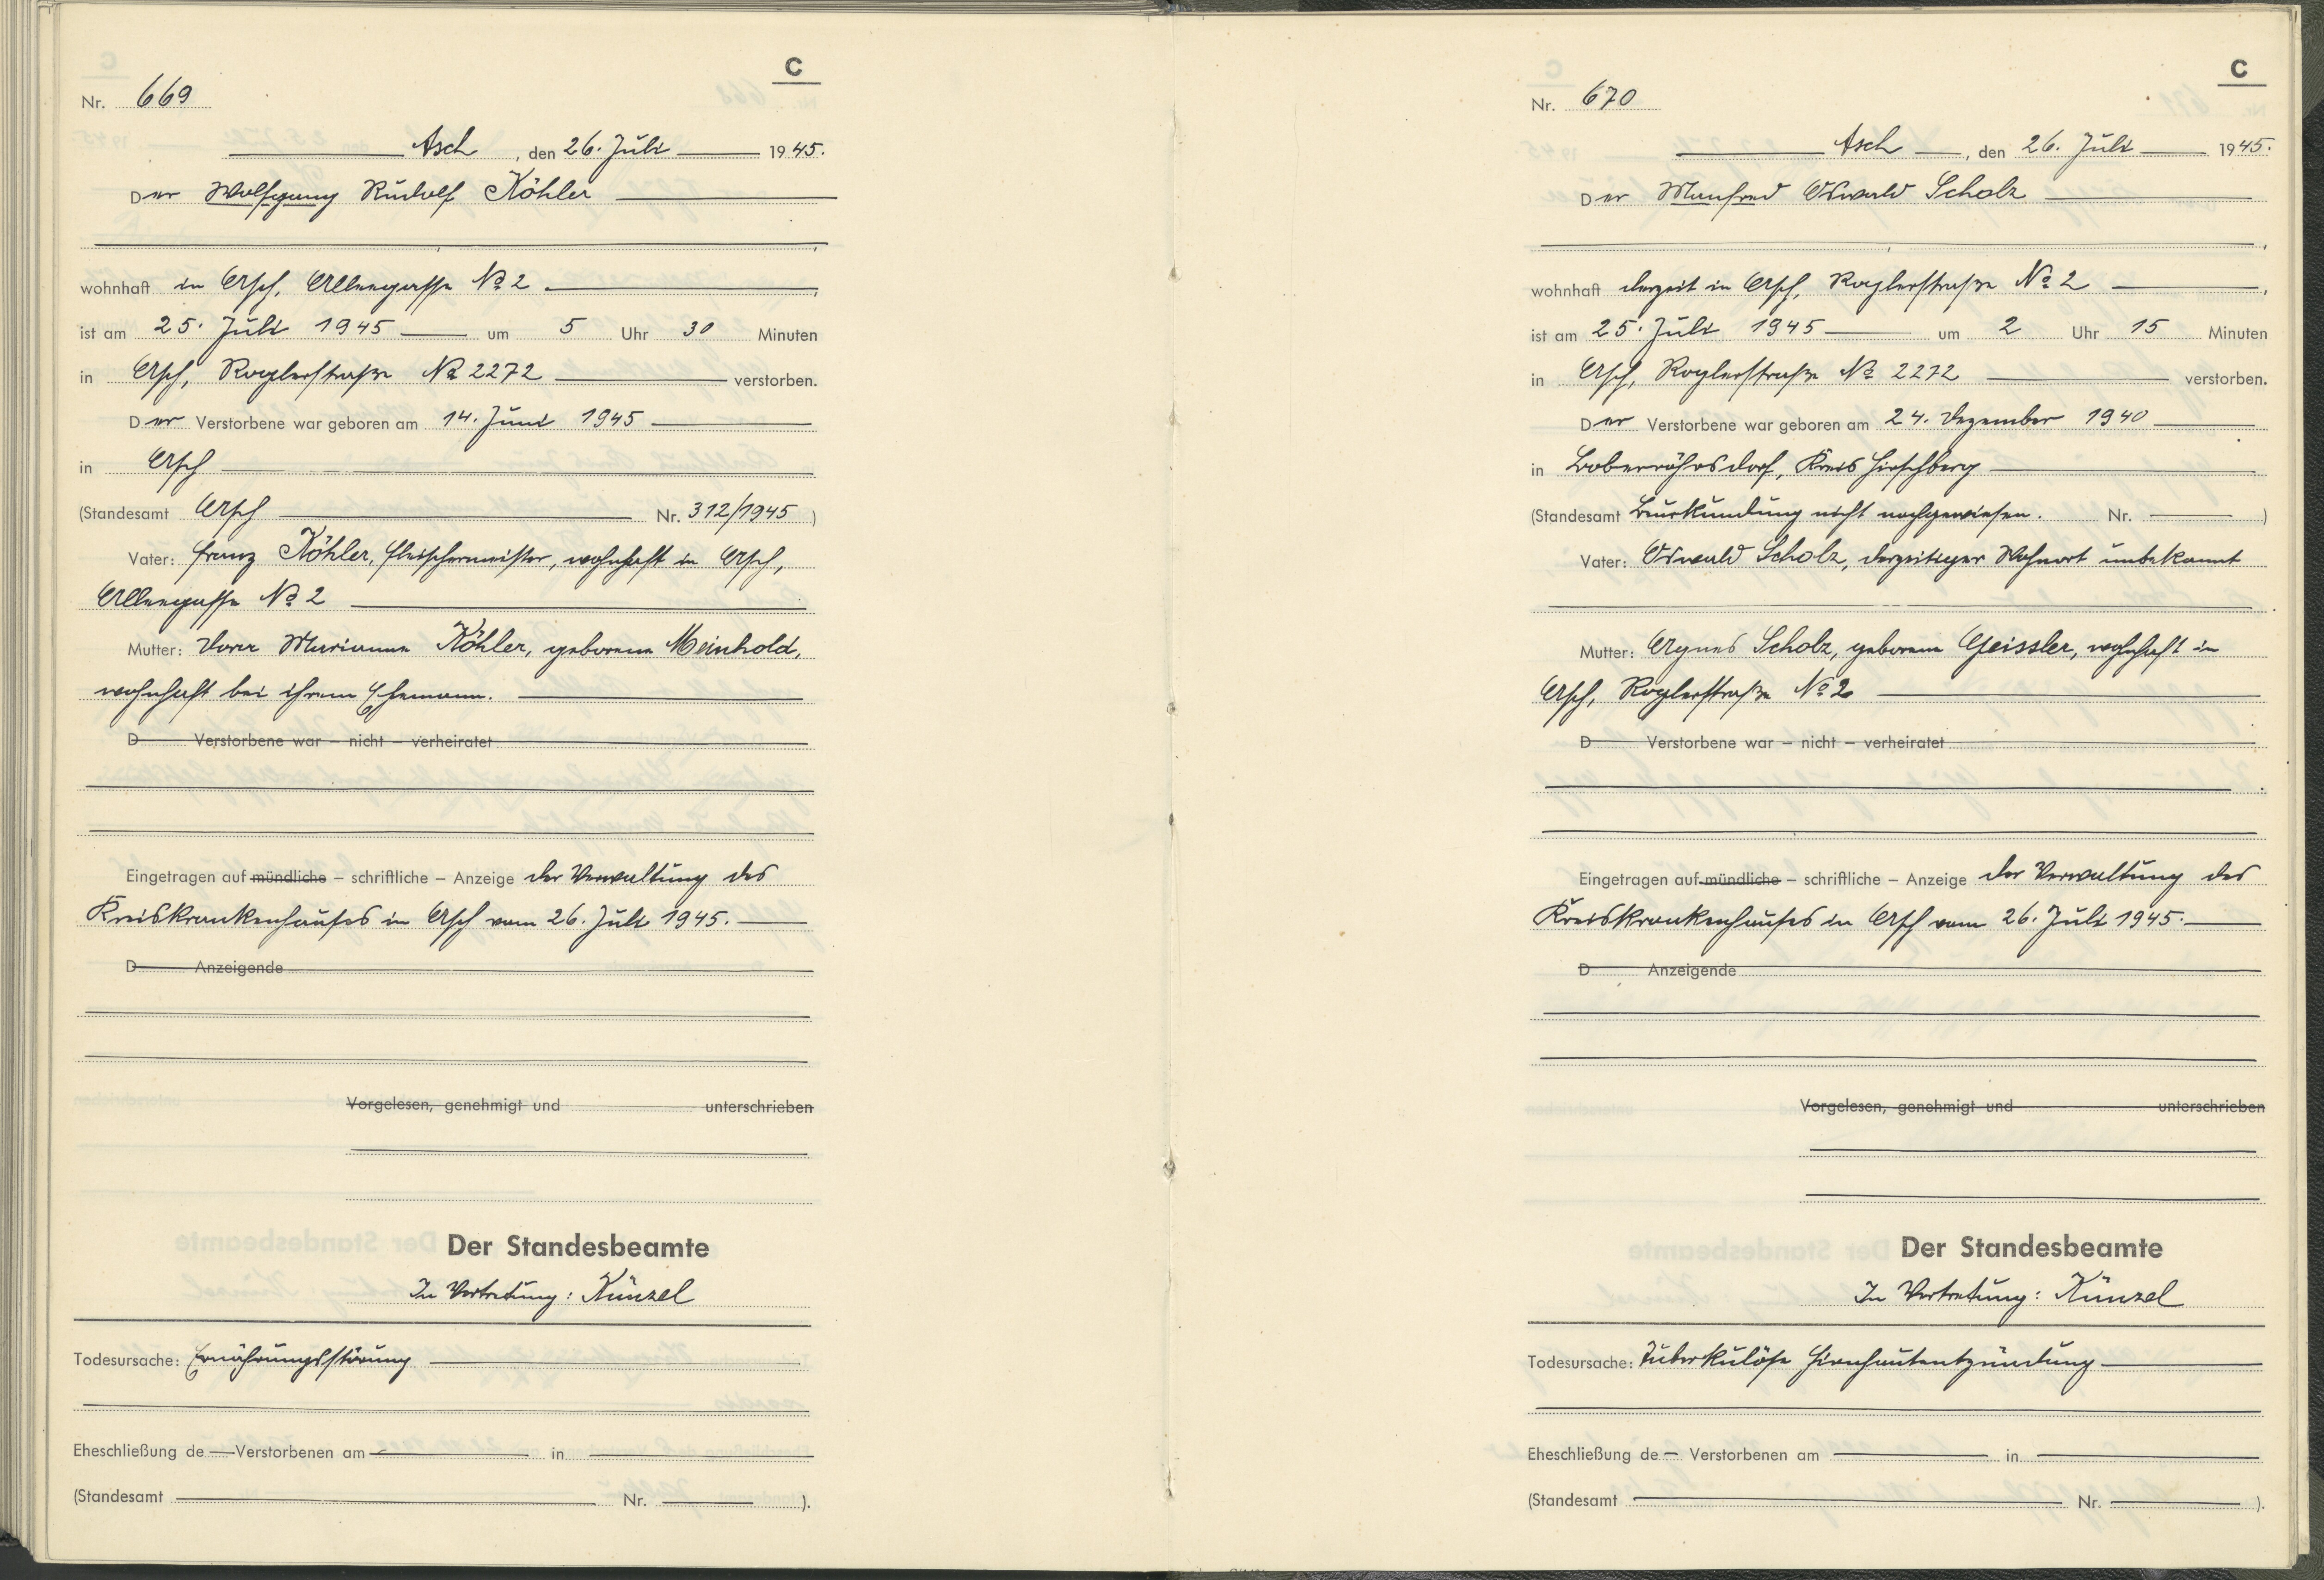 C
Nr. 669
Asch, den 26. Juli 1945.
Der Wolfgang Rudolf Köhler
wohnhaft in Asch, Alleegasse № 2
ist am 25. Juli 1945 um 5 Uhr 30 Minuten
in Asch, Roglerstraße № 2272 verstorben.
Der Verstorbene war geboren am 14. Juni 1945
in Asch
(Standesamt Asch Nr. 312/1945)
Vater: Franz Köhler, Fleischermeister, wohnhaft in Asch,
Alleegasse № 2
Mutter: Dora Marianne Köhler, geborene Meinhold,
wohnhaft bei ihrem Ehemann.
D Verstorbene war – nicht – verheiratet
Eingetragen auf mündliche – schriftliche – Anzeige der Verwaltung des
Kreiskrankenhauses in Asch vom 26. Juli 1945.
D Anzeigende
Vorgelesen, genehmigt und unterschrieben
Der Standesbeamte
In Vertretung: Künzel
Todesursache: Ernährungsstörung
Eheschließung de Verstorbenen am in
(Standesamt Nr. ).
C
Nr. 670
Asch, den 26. Juli 1945.
Der Manfred Oswald Scholz
wohnhaft derzeit in Asch, Roglerstraße № 2
ist am 25. Juli 1945 um 2 Uhr 15 Minuten
in Asch, Roglerstraße № 2272 verstorben.
Der Verstorbene war geboren am 24. Dezember 1940
in Boberröhrsdorf, Kreis Hirschberg
(Standesamt Beurkundung nicht nachgewiesen. Nr. )
Vater: Oswald Scholz, derzeitiger Wohnort unbekannt
Mutter: Agnes Scholz, geborene Geissler, wohnhaft in
Asch, Roglerstraße № 2
D Verstorbene war – nicht – verheiratet
Eingetragen auf mündliche – schriftliche – Anzeige der Verwaltung des
Kreiskrankenhauses in Asch vom 26. Juli 1945.
D Anzeigende
Vorgelesen, genehmigt und unterschrieben
Der Standesbeamte
In Vertretung: Künzel
Todesursache: Tuberkulöse Hirnhautentzündung
Eheschließung de Verstorbenen am in
(Standesamt Nr. ).